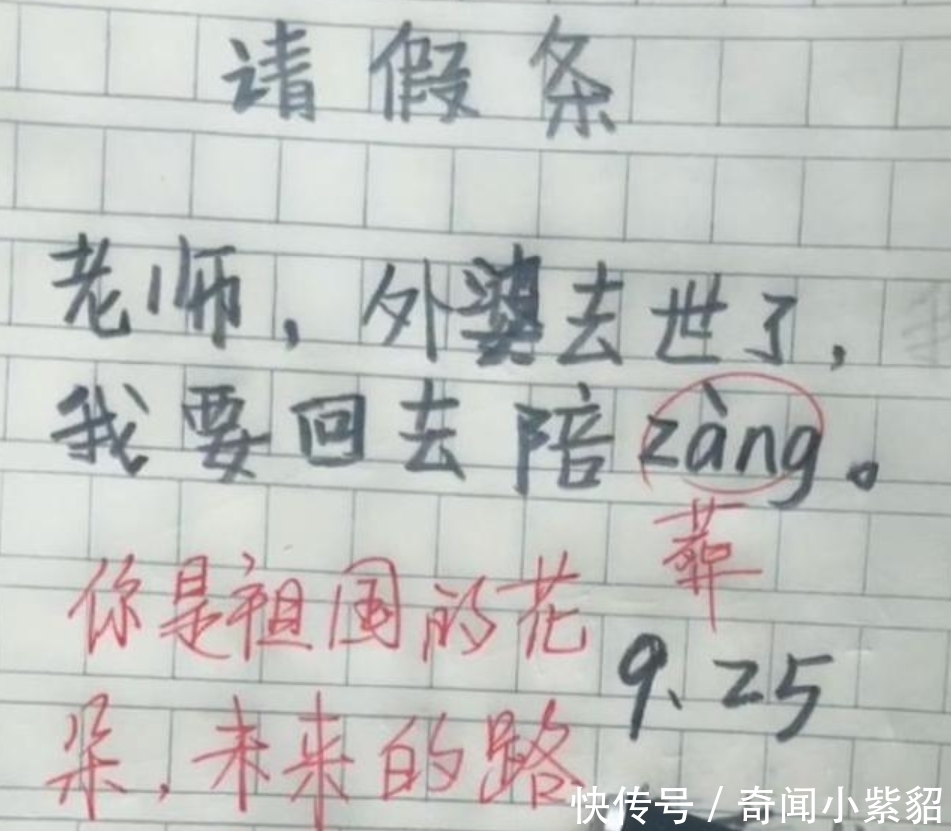 请假条
老师,外婆去世了,
我要回去陪zàng。
葬
你是祖国的花
9.25
朵,未来的路
快传号/奇闻小紫貂